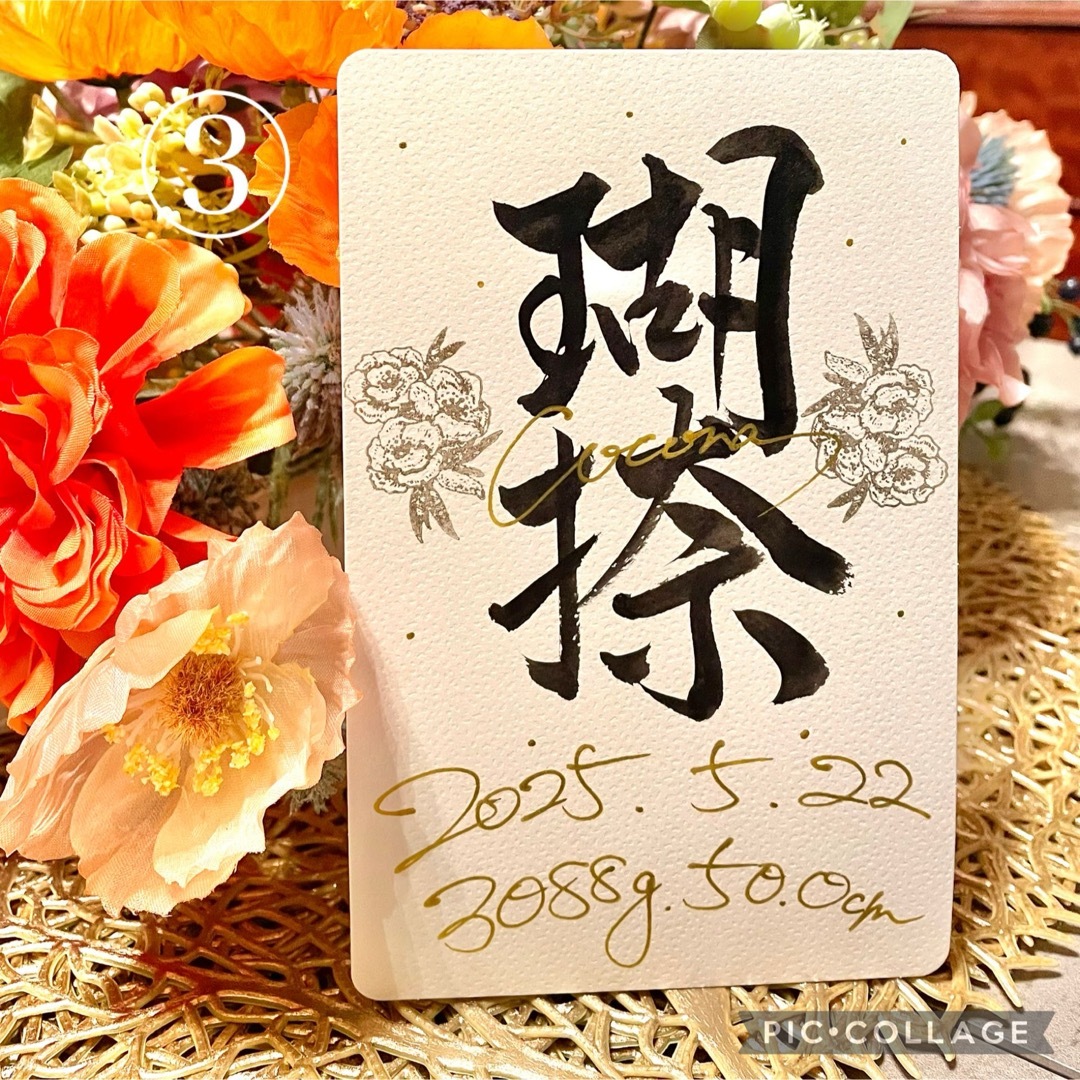 ③
瑚捺
Cocona
2025.5.22
3088g.50.0cm
PIC•COLLAGE